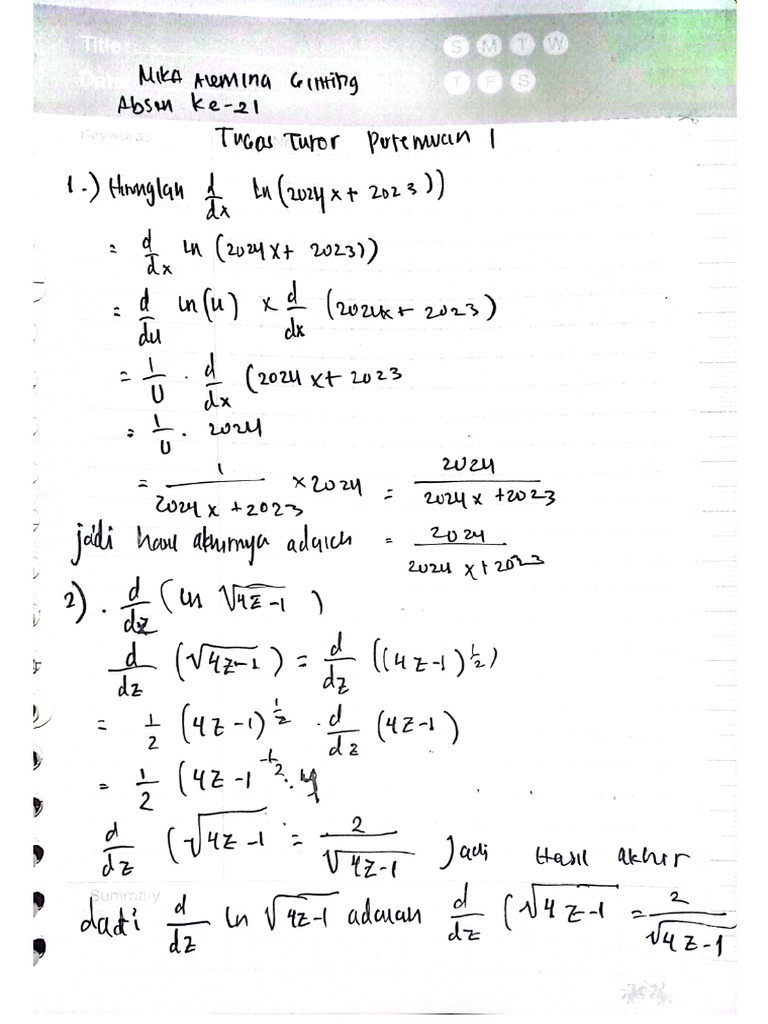 Title :
S M T W
T F S
Mika Alemina Ginting
Absen Ke-21
Keywords
Tugas Tutor Pertemuan 1
1.) Hitunglah d/dx ln(2024x + 2023))
= d/dx ln (2024x + 2023))
= d/du ln(u) x d/dx (2024x + 2023)
= 1/U . d/dx (2024x + 2023
= 1/U . 2024
= 1/2024x + 2023 x 2024 = 2024/2024x + 2023
jadi hasil akhirnya adalah = 2024/2024x + 2023
2). d/dz (ln √4z-1 )
d/dz (√4z-1) = d/dz ((4z-1)^1/2)
= 1/2 (4z-1)^1/2 . d/dz (4z-1)
= 1/2 (4z-1^-1/2 . 4
d/dz (√4z-1 = 2/√4z-1 Jadi Hasil akhir
Summary
dari d/dz ln √4z-1 adalah d/dz (√4z-1 = 2/√4z-1